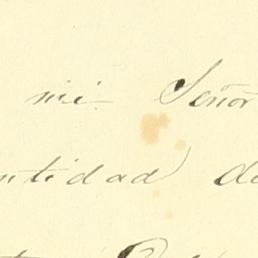 mi Señor
ntidad de